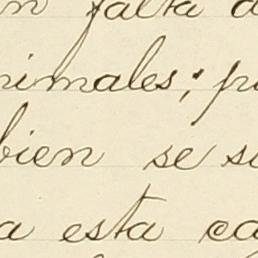 n falta a
nimales; p
bien se s
a esta ca